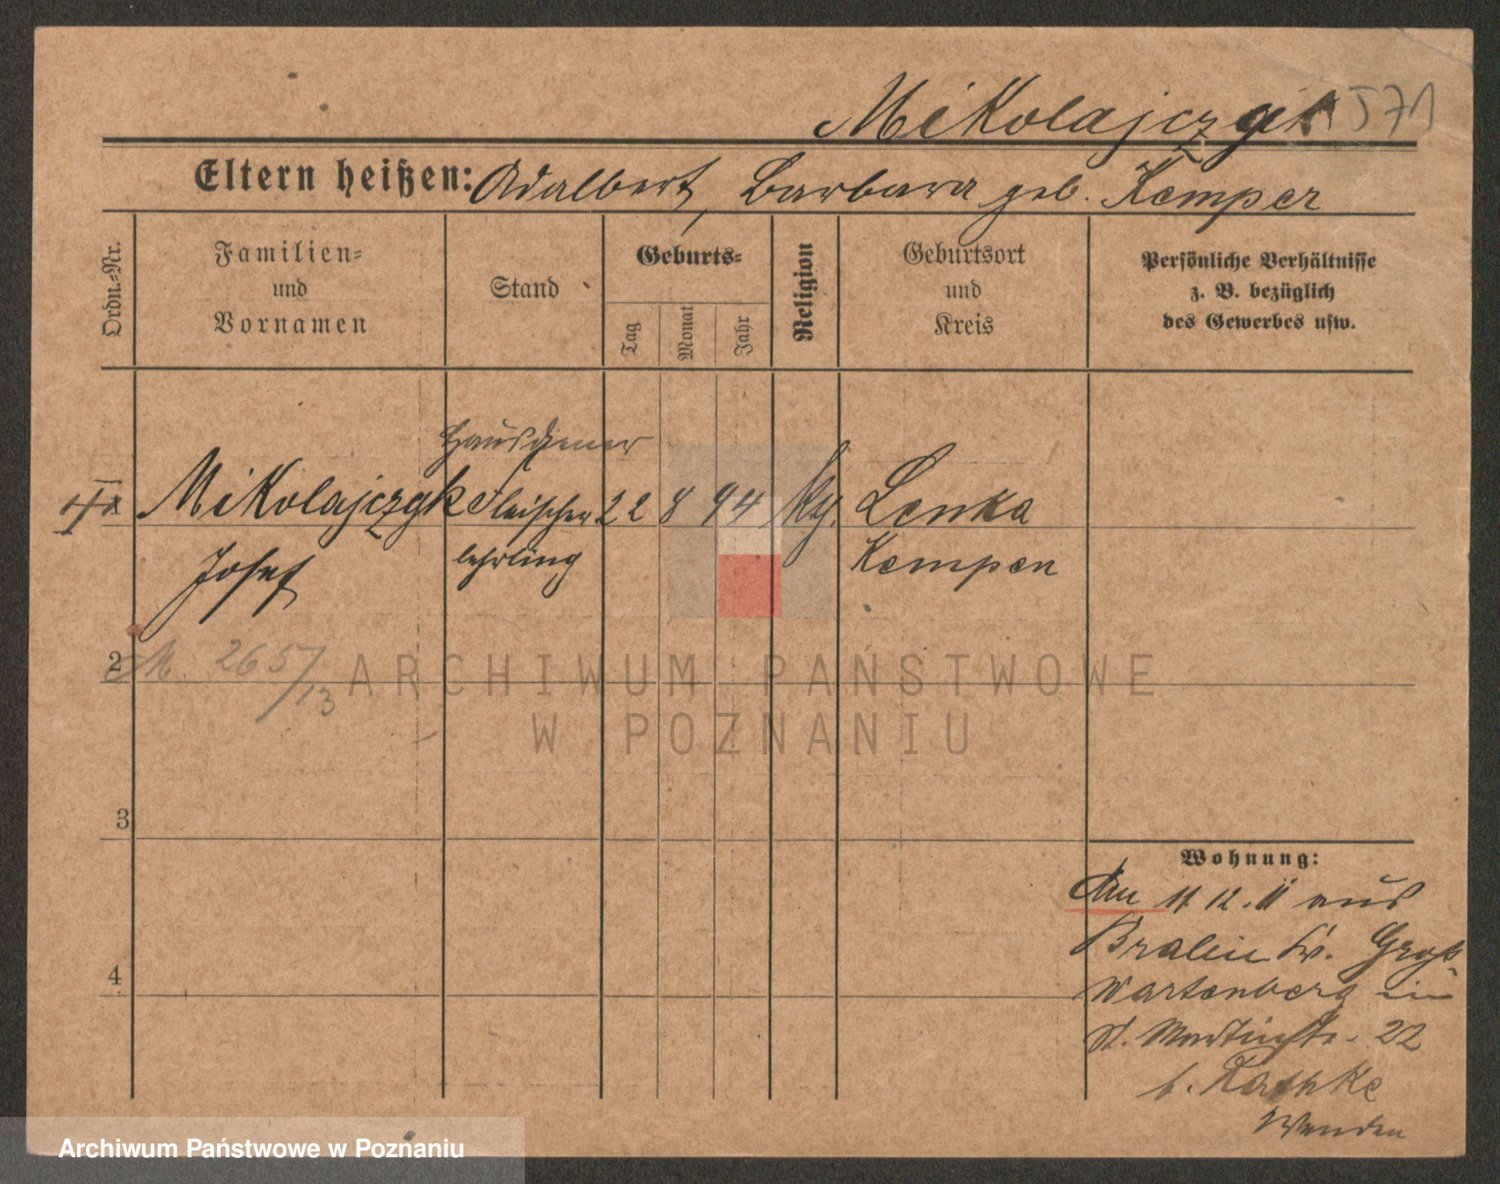 Mikolajczyk 571
Eltern heißen: Adalbert, Barbara geb. Kemper
Ordn.-Nr.
Familien-
und
Vornamen
Stand
Geburts-
Tag
Monat
Jahr
Religion
Geburtsort
und
Kreis
Persönliche Verhältnisse
z. B. bezüglich
des Gewerbes usw.
Hausdiener
Mikolajczyk Fleischer 22 8 94 Lenka
Josef lehrling Kempen
2 M. 2657/13
3
4
Wohnung:
Am 11.12.11 aus
Bralin Kr. Groß
Wartenberg in
St. Martinstr. 22
b. Rathke
ARCHIWUM PAŃSTWOWE
W POZNANIU
Archiwum Państwowe w Poznaniu